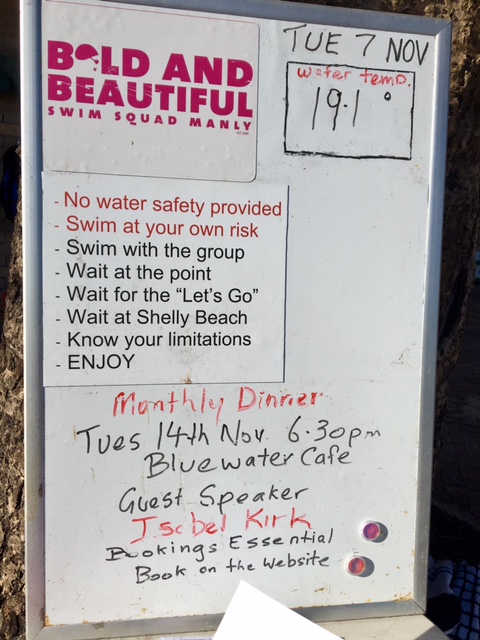 BOLD AND
BEAUTIFUL
SWIM SQUAD MANLY
TUE 7 NOV
water temp.
19.1°
- No water safety provided
- Swim at your own risk
- Swim with the group
- Wait at the point
- Wait for the “Let's Go”
- Wait at Shelly Beach
- Know your limitations
- ENJOY
Monthly Dinner
Tues 14th Nov. 6.30pm
Bluewater Cafe
Guest Speaker
Isobel Kirk
Bookings Essential
Book on the Website